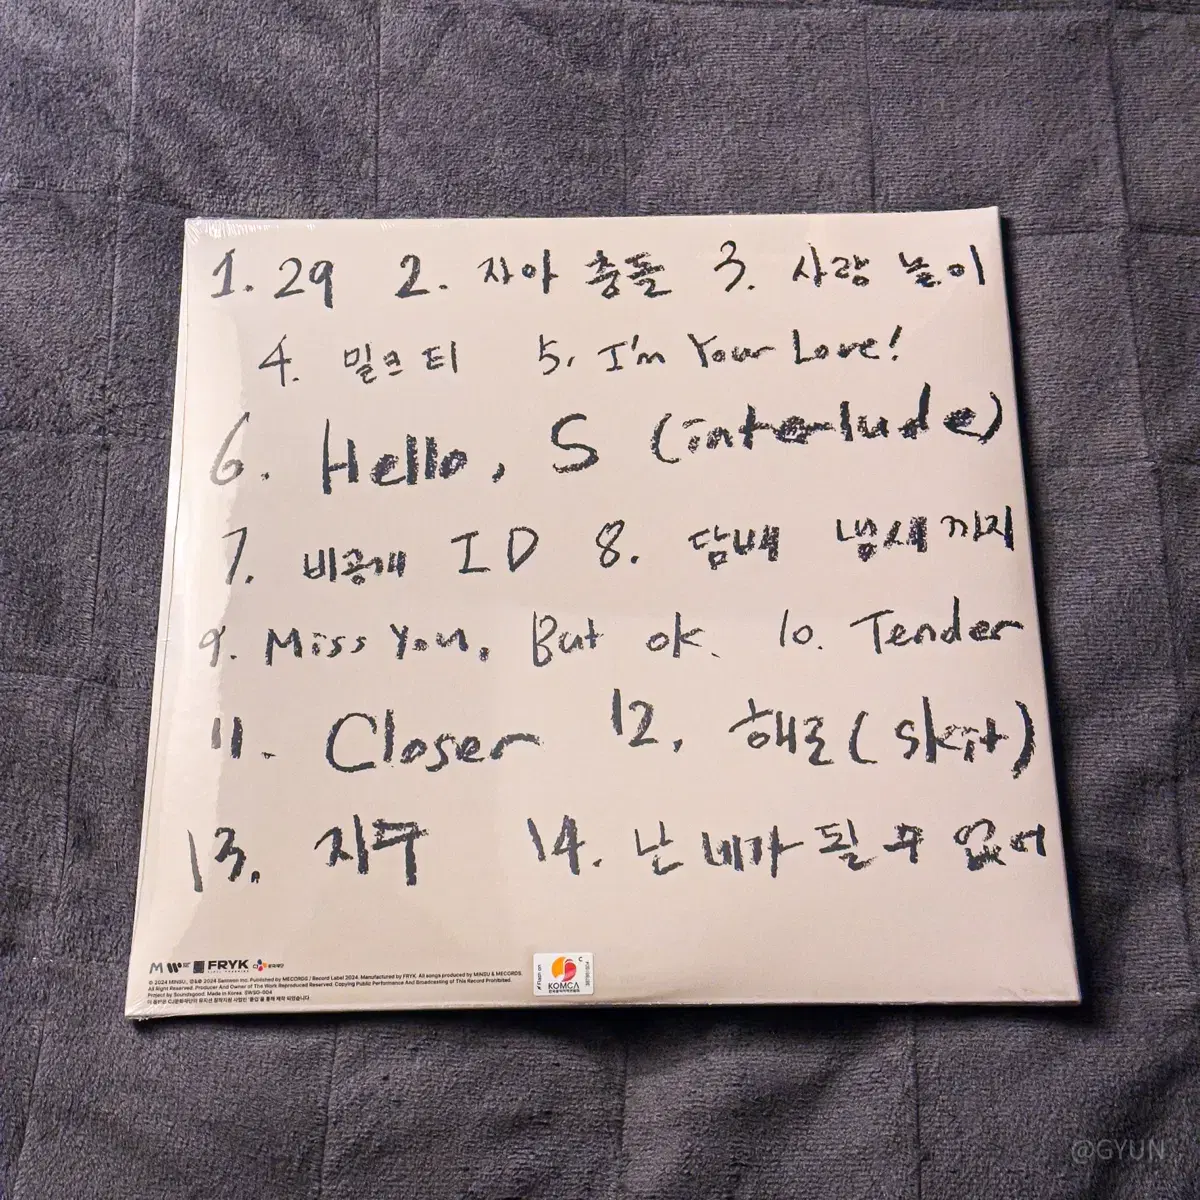 1. 29 2. 자아 충돌 3. 사랑 놀이
4. 밀크티 5. I'm Your Love!
6. Hello, S (interlude)
7. 비공개 ID 8. 담배 냄새까지
9. Miss You, But ok. 10. Tender
11. Closer 12. 해로 (skit)
13. 지구 14. 난 네가 필수 없어
FRYK
© 2024 MINSU, ℗&© 2024 Sammin Inc. Published by MECORDS / Record Label 2024. Manufactured by FRYK. All songs produced by MINSU & MECORDS.
All Right Reserved. Producer And Owner Of The Work Reproduced Reserved. Copying Public Performance And Broadcasting of This Record Prohibited.
Project by Soundsgood. Made in Korea.
KOMCA
@GYUN